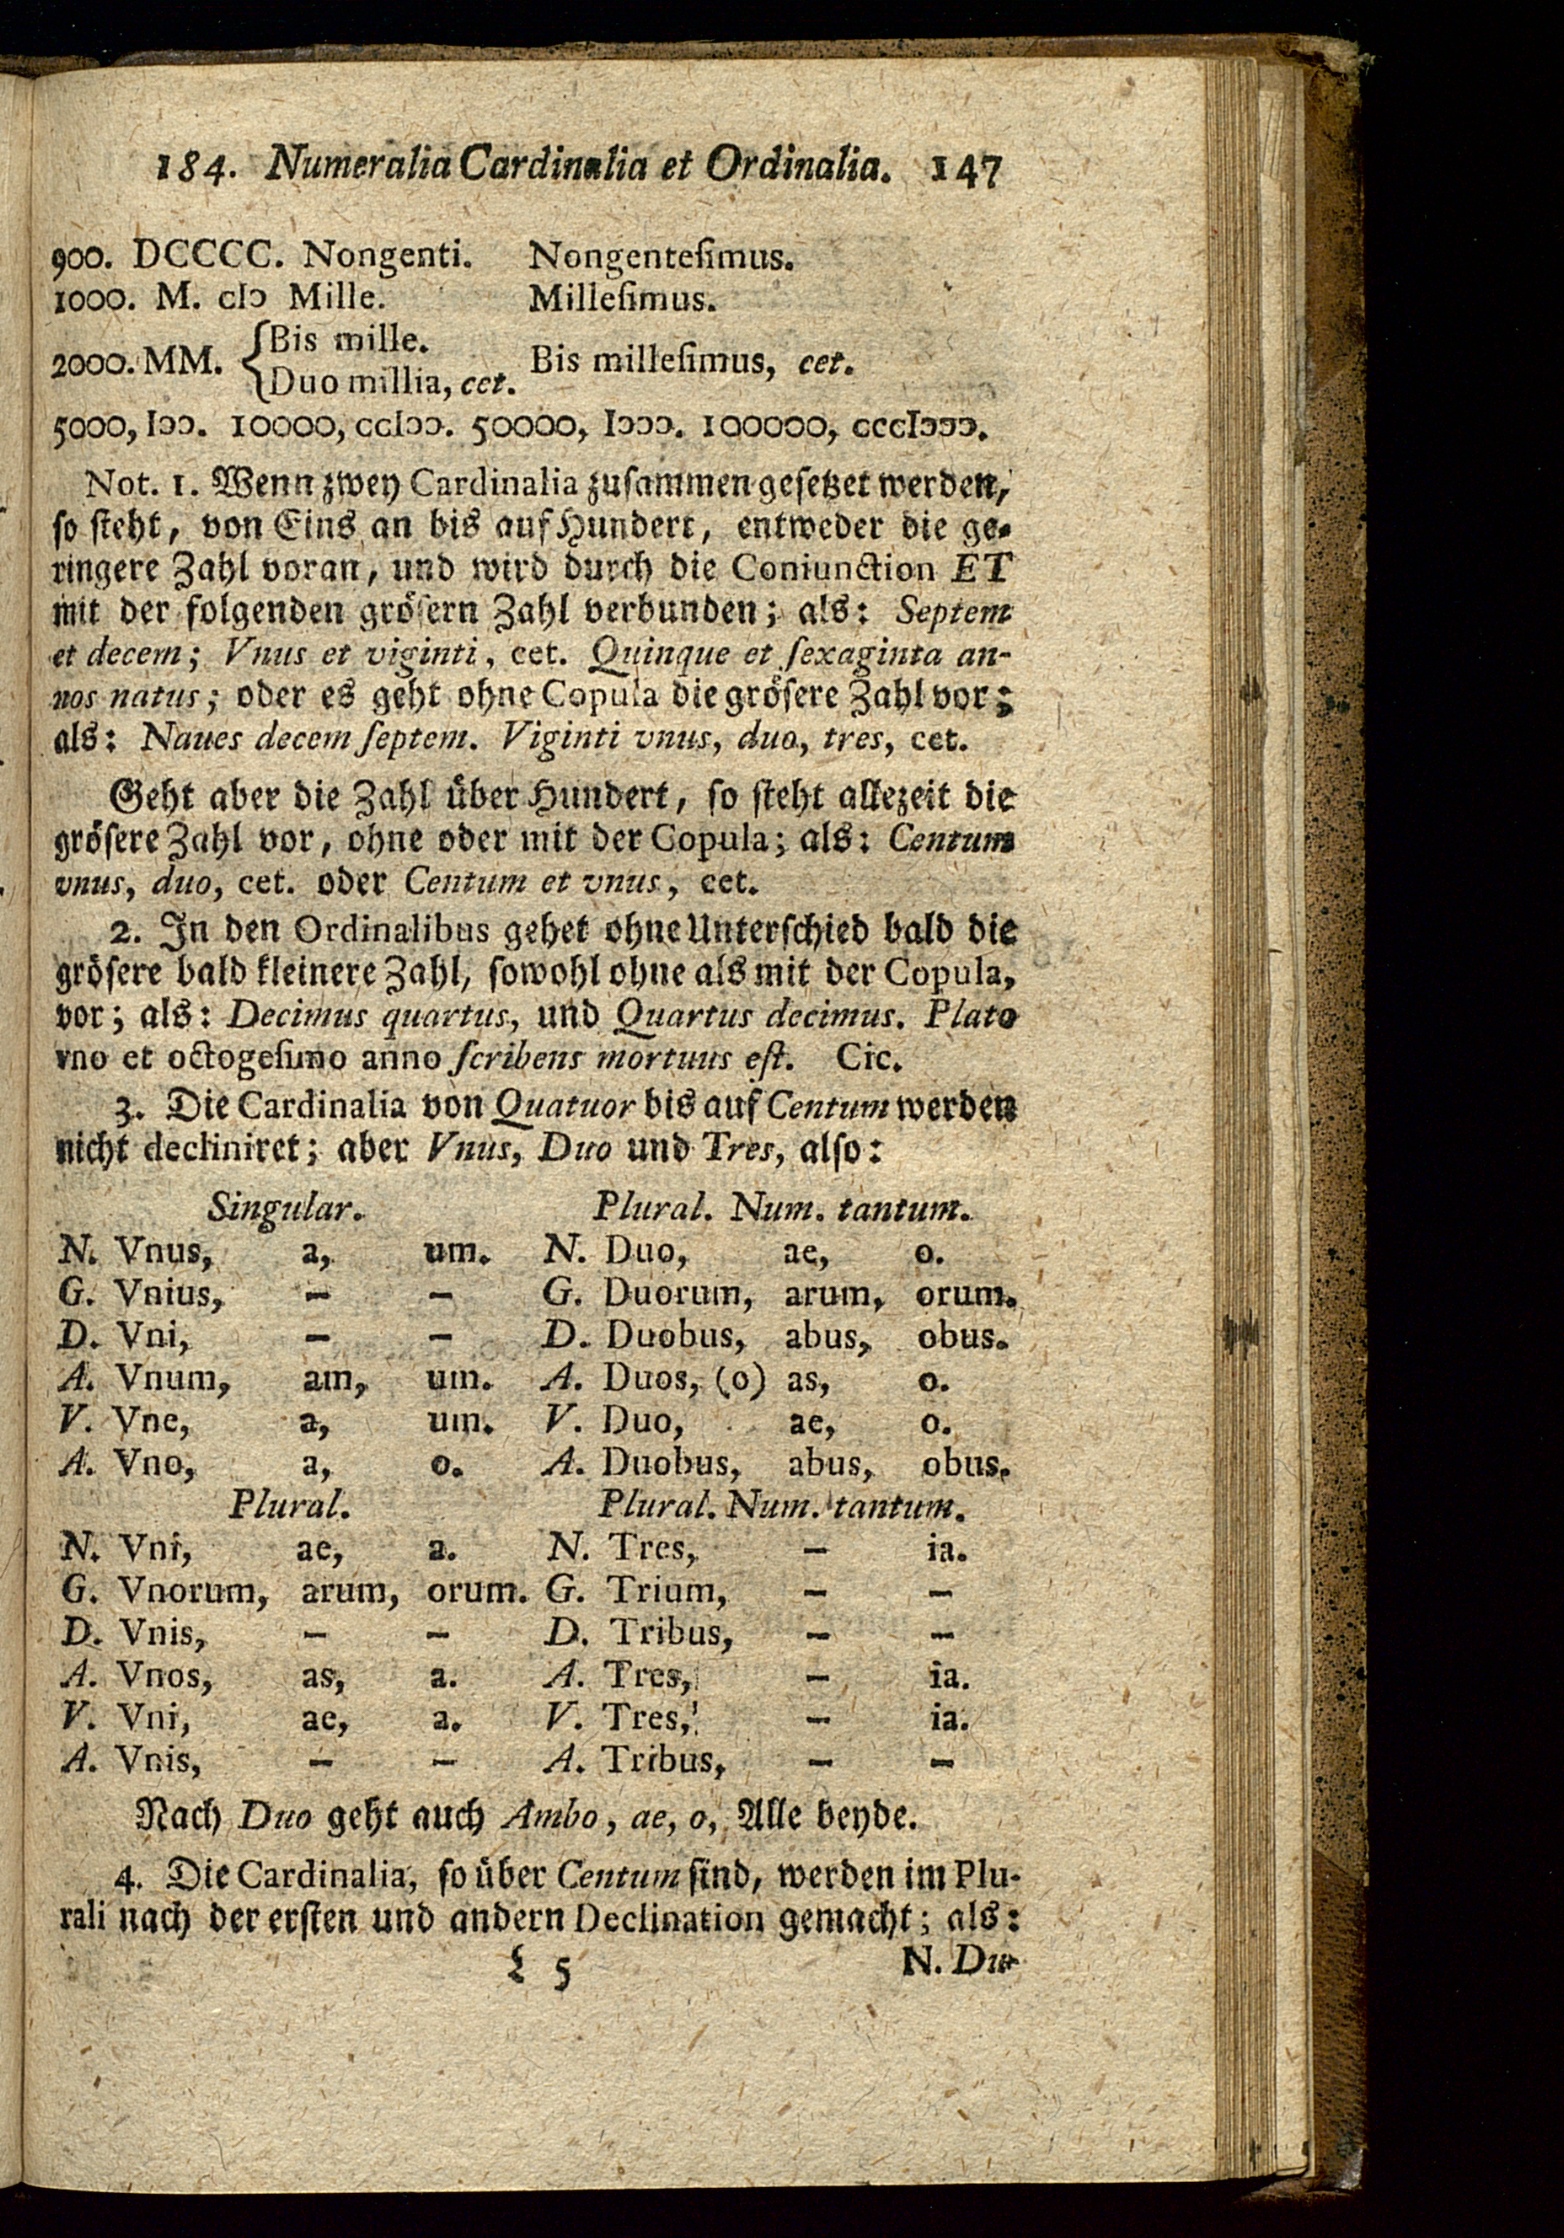 184. Numeralia Cardinalia et Ordinalia. 147
900. DCCCC. Nongenti. Nongentesimus.
1000. M. cIɔ Mille. Millesimus.
2000. MM. {Bis mille. Bis millesimus, cet.
Duo millia, cet.
5000, Iɔɔ. 10000, ccIɔɔ. 50000, Iɔɔɔ. 100000, cccIɔɔɔ.
Not. 1. Wenn zwey Cardinalia zusammen gesetzet werden,
so steht, von Eins an bis auf Hundert, entweder die ge-
ringere Zahl voran, und wird durch die Coniunction ET
mit der folgenden grösern Zahl verbunden; als: Septem
et decem; Vnus et viginti, cet. Quinque et sexaginta an-
nos natus; oder es geht ohne Copula die grösere Zahl vor;
als: Naues decem septem. Viginti vnus, duo, tres, cet.
Geht aber die Zahl über Hundert, so steht allezeit die
grösere Zahl vor, ohne oder mit der Copula; als: Centum
vnus, duo, cet. oder Centum et vnus, cet.
2. In den Ordinalibus gehet ohne Unterschied bald die
grösere bald kleinere Zahl, sowohl ohne als mit der Copula,
vor; als: Decimus quartus, und Quartus decimus. Plato
vno et octogesimo anno scribens mortuus est. Cic.
3. Die Cardinalia von Quatuor bis auf Centum werden
nicht decliniret; aber Vnus, Duo und Tres, also:
Singular. Plural. Num. tantum.
N. Vnus, a, um. N. Duo, ae, o.
G. Vnius, – – G. Duorum, arum, orum.
D. Vni, – – D. Duobus, abus, obus.
A. Vnum, am, um. A. Duos, (o) as, o.
V. Vne, a, um. V. Duo, ae, o.
A. Vno, a, o. A. Duobus, abus, obus.
Plural. Plural. Num. tantum.
N. Vni, ae, a. N. Tres, – ia.
G. Vnorum, arum, orum. G. Trium, – –
D. Vnis, – – D. Tribus, – –
A. Vnos, as, a. A. Tres, – ia.
V. Vni, ae, a. V. Tres, – ia.
A. Vnis, – – A. Tribus, – –
Nach Duo geht auch Ambo, ae, o, Alle beyde.
4. Die Cardinalia, so über Centum sind, werden im Plu-
rali nach der ersten und andern Declination gemacht; als:
K 5 N. Du-